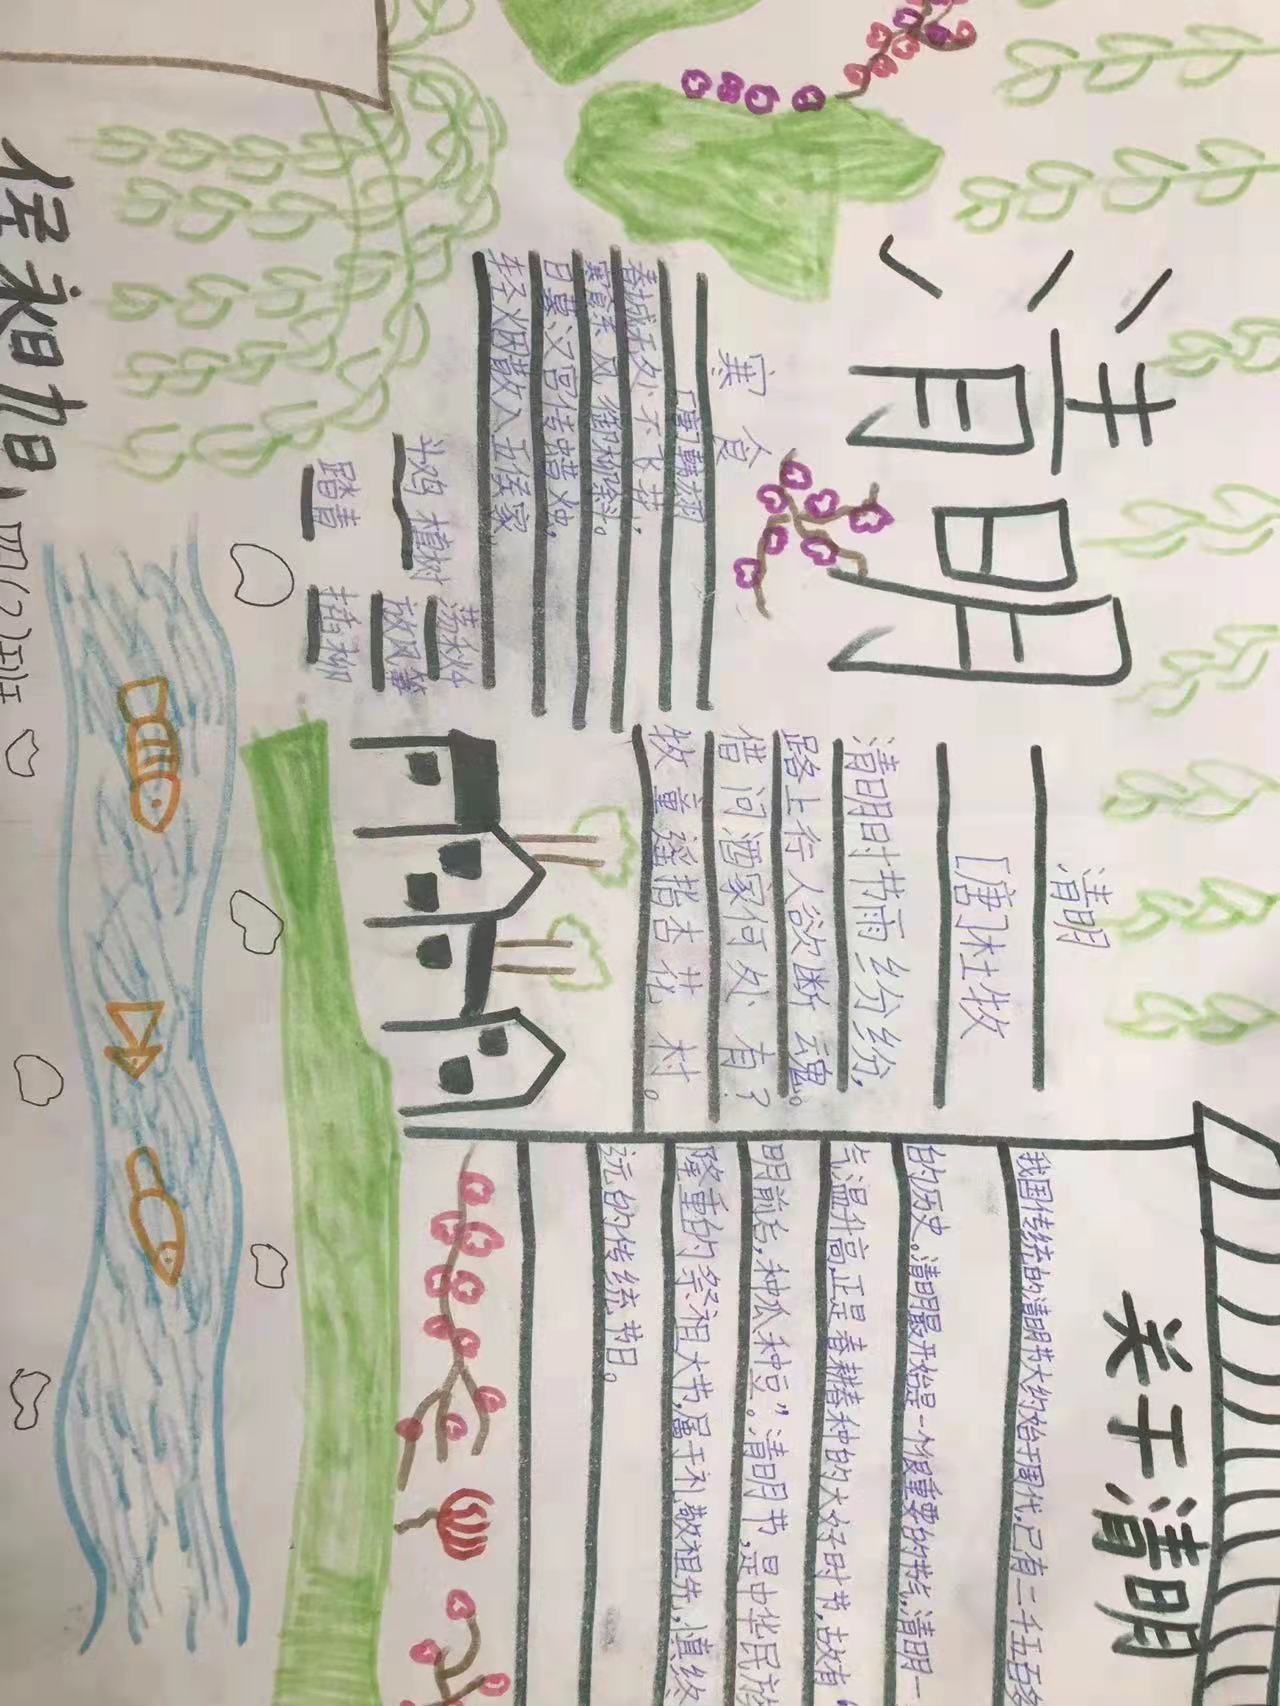 清明
寒食
[唐]韩翃
春城无处不飞花，
寒食东风御柳斜。
日暮汉宫传蜡烛，
轻烟散入五侯家
斗鸡 植树 荡秋千
放风筝
踏青 插柳
清明
[唐]杜牧
清明时节雨纷纷，
路上行人欲断魂。
借问酒家何处有？
牧童遥指杏花村。
关于清明
我国传统的清明节大约始于周代，已有二千五百多
的历史。清明最开始是一个很重要的节气，清明一
气温升高，正是春耕春种的大好时节，故有“
明前后，种瓜种豆。”清明节，是中华民族
隆重的祭祖大节，属于礼敬祖先，慎终
远的传统节日。
四(2)班